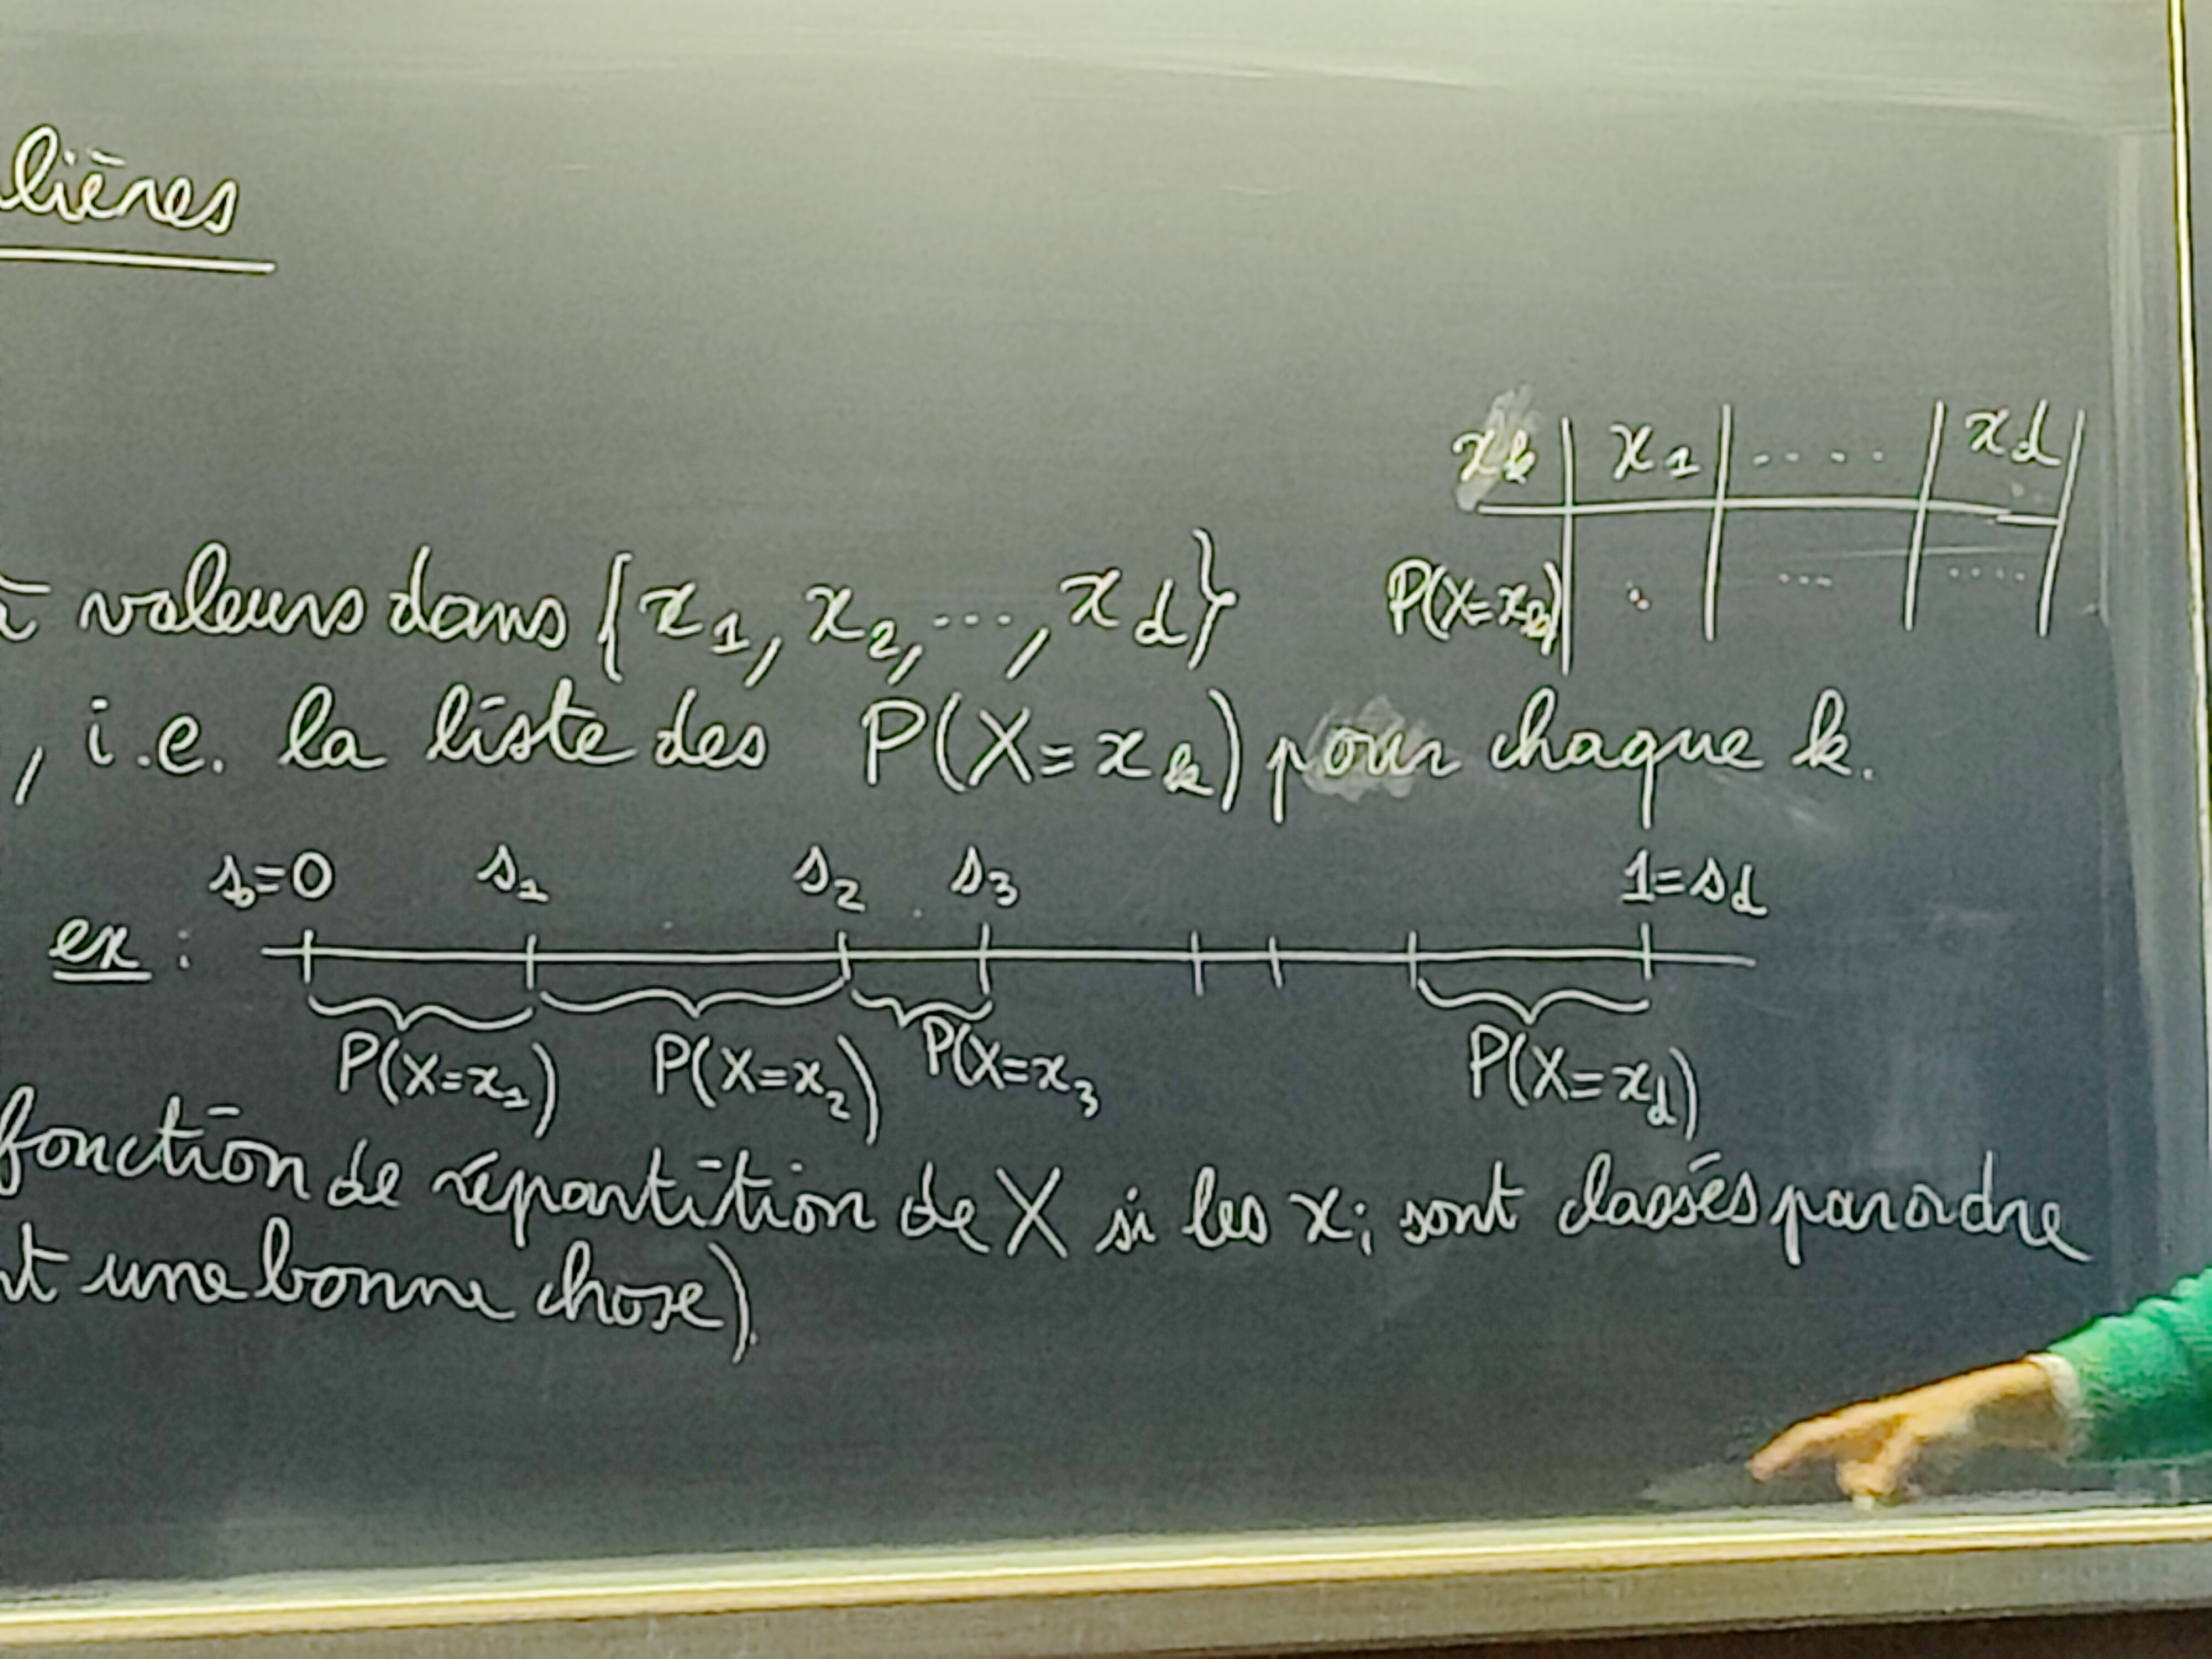 lières
x_k | x_1 | ..... | x_d
P(X=x_k) | : | ... | ....
à valeurs dans {x_1, x_2, ..., x_d}
, i.e. la liste des P(X=x_k) pour chaque k.
s_0=0 s_1 s_2 s_3 1=s_d
ex :
P(X=x_1) P(X=x_2) P(X=x_3 P(X=x_d)
fonction de répartition de X si les x_i sont classés par ordre
nt une bonne chose).